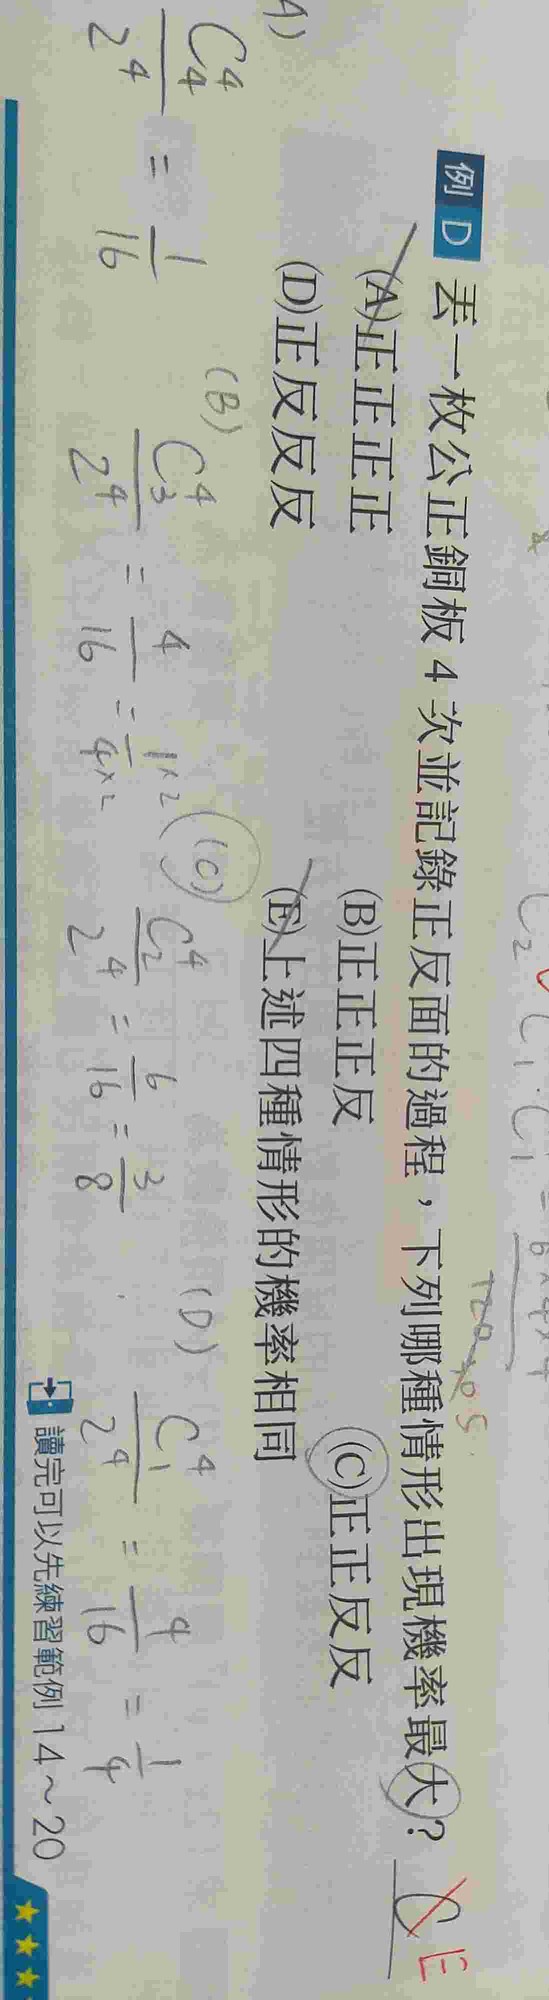 例 D 丟一枚公正銅板 4 次並記錄正反面的過程，下列哪種情形出現機率最大？ C E
(A)正正正正 (B)正正正反 (C)正正反反
(D)正反反反 (E)上述四種情形的機率相同
A) C⁴₄/2⁴ = 1/16
(B) C⁴₃/2⁴ = 4/16 = 1×2/4×2
(C) C⁴₂/2⁴ = 6/16 = 3/8
(D) C⁴₁/2⁴ = 4/16 = 1/4
讀完可以先練習範例 14～20